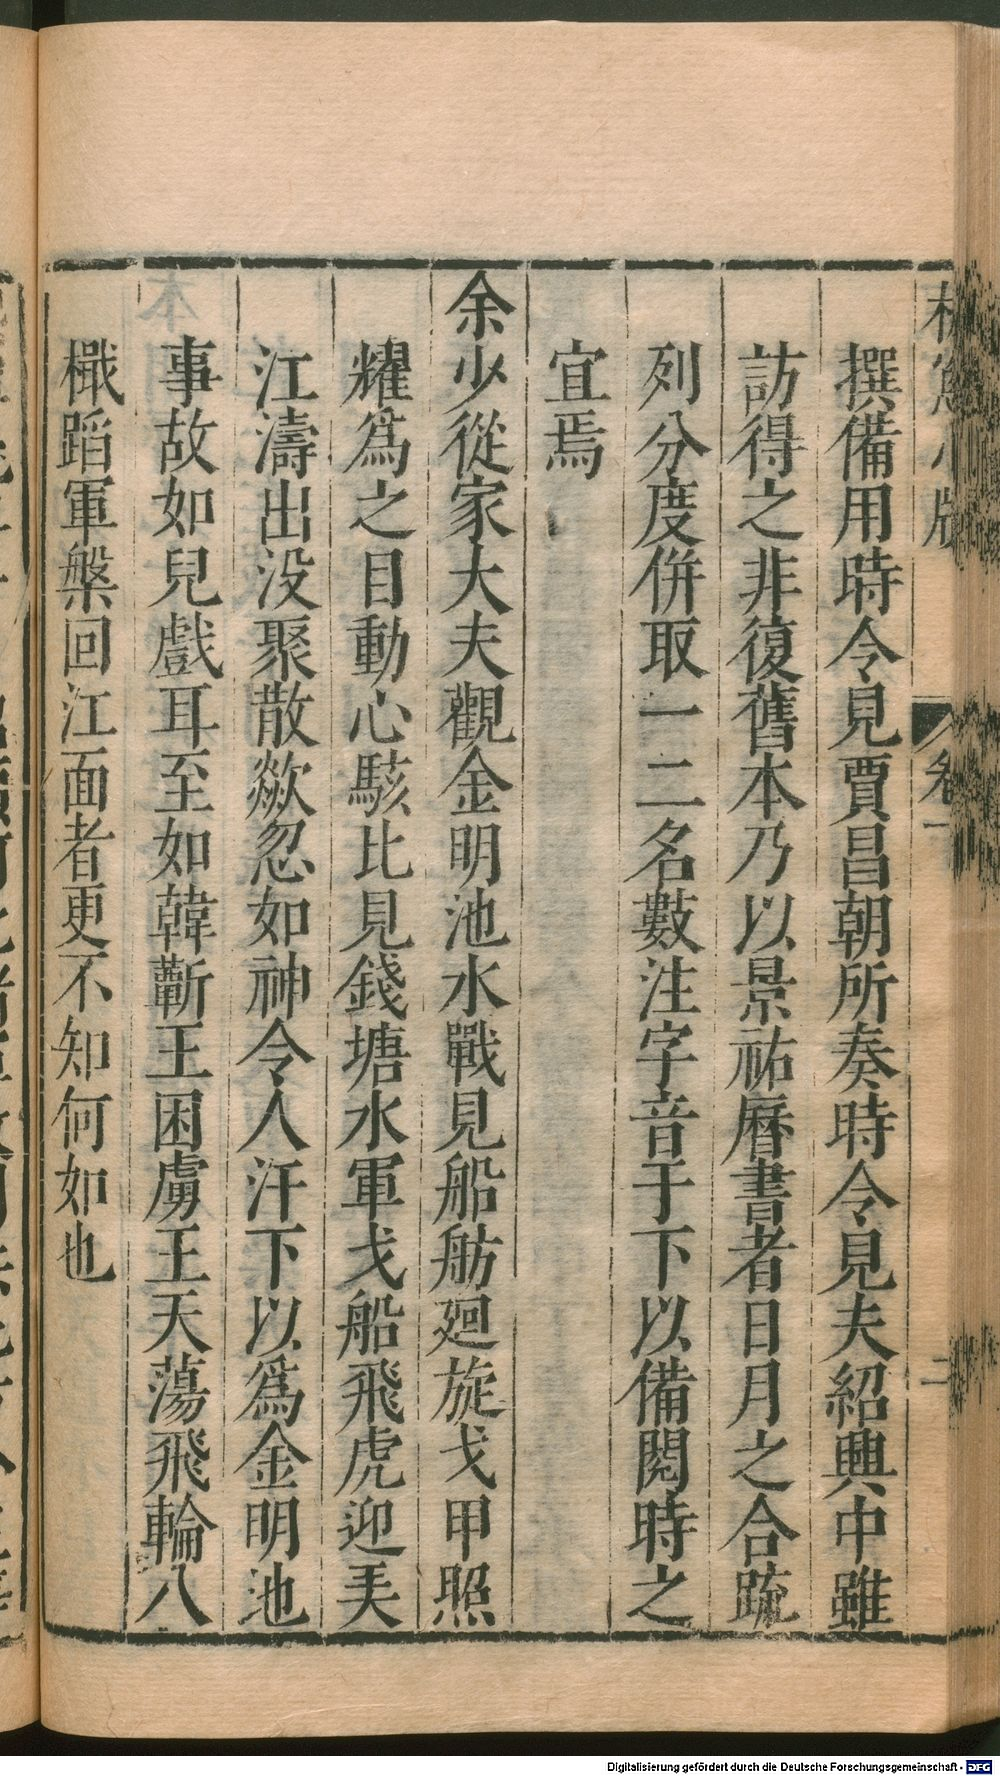 撰備用時令見賈昌朝所奏時令見夫紹興中雖
訪得之非復舊本乃以景祐曆書者日月之合䟽
列分度併取一二名數注字音于下以備閱時之
宜焉
余少從家大夫觀金明池水戰見船舫廻旋戈甲照
耀爲之目動心駭比見錢塘水軍戈船飛虎迎𢍆
江濤出没聚散歘忽如神令人汗下以爲金明池
事故如兒戲耳至如韓蘄王困虜王天蕩飛輪八
檝蹈軍槃回江面者更不知何如也
卷一
二
Digitalisierung gefördert durch die Deutsche Forschungsgemeinschaft - DFG